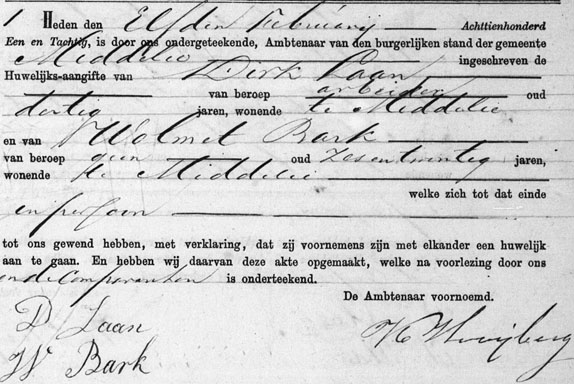 1 Heden den Elfden Februarij Achttienhonderd
Een en Tachtig, is door ons ondergeteekende, Ambtenaar van den burgerlijken stand der gemeente
Middelie ingeschreven de
Huwelijks-aangifte van Dirk Laan
van beroep arbeider oud
dertig jaren, wonende te Middelie
en van Wolmet Bark
van beroep geen oud zesentwintig jaren,
wonende te Middelie
welke zich tot dat einde
in persoon
tot ons gewend hebben, met verklaring, dat zij voornemens zijn met elkander een huwelijk
aan te gaan. En hebben wij daarvan deze akte opgemaakt, welke na voorlezing door ons
en de Comparanten is onderteekend.
De Ambtenaar voornoemd.
D Laan
W Bark